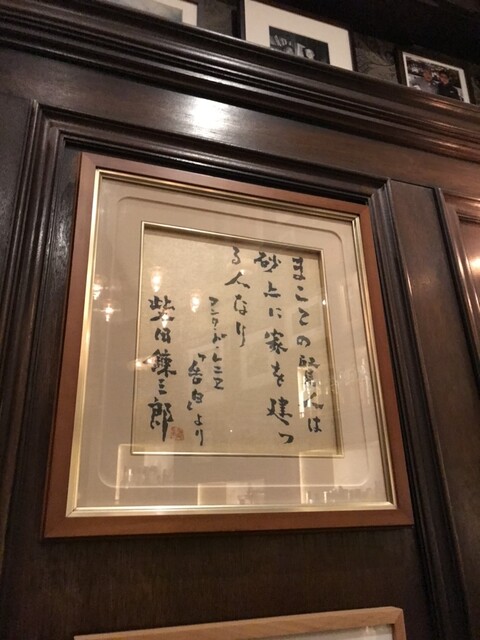 まことの人は
砂上に家を建つ
る人なり
レニエ
「告白」より
柴田錬三郎